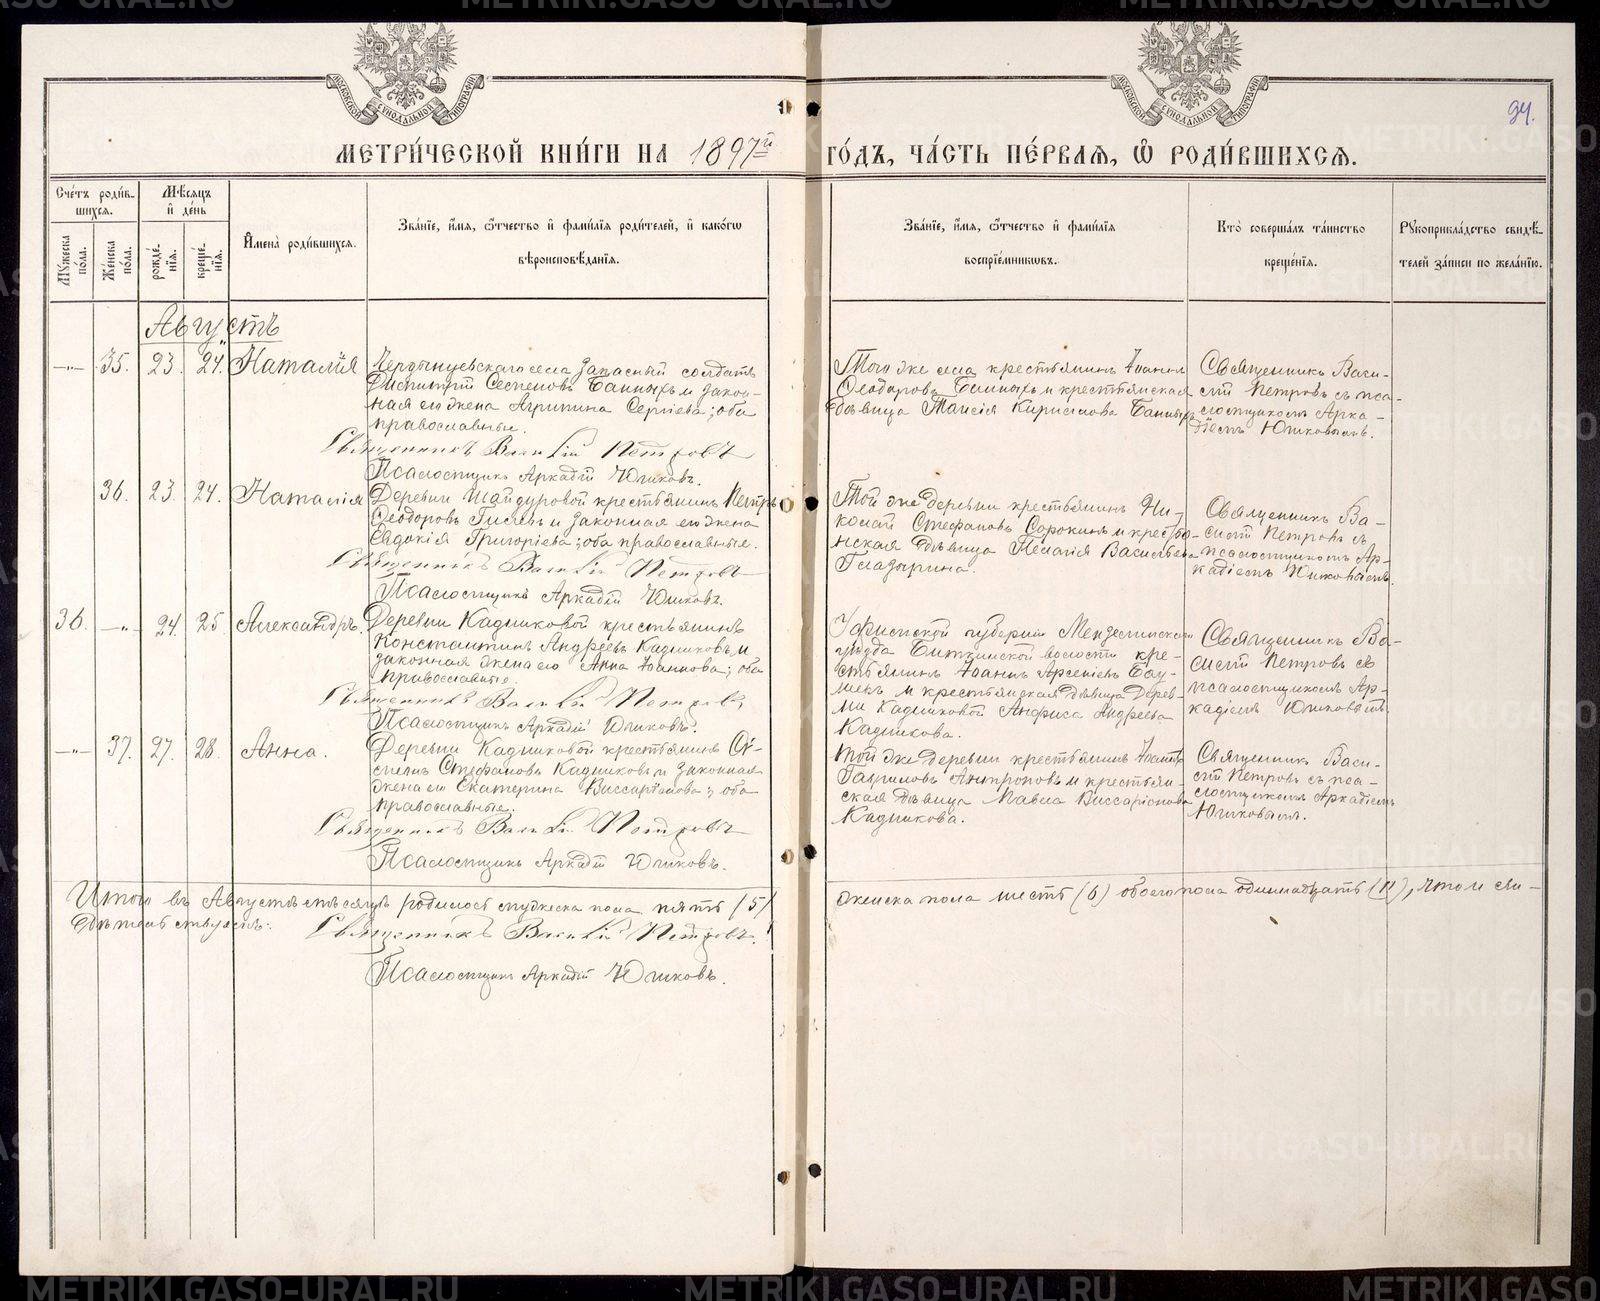 МЕТРИ́ЧЕСКОЙ КНИ́ГИ НА 1897й ГО́ДЪ, ЧА́СТЬ ПЕ́РВАЯ, Ѡ РОДИ́ВШИХСЯ.
94.
Сче́тъ роди́в-
шихся.
Му́жеска по́ла.
Же́нска по́ла.
Мѣ́сяцъ
и́ де́нь
рожде́-
нія.
креще́-
нія.
И́мена̀ роди́вшихся.
Зва́ніе, и́мя, ѻ́тчество и́ фами́лія роди́телей, и́ како́гѡ
вѣроисповѣ́данія.
Зва́ніе, и́мя, ѻ́тчество и́ фами́лія
воспріе́мникѡвъ.
Кто̀ соверша́лъ та́инство
креще́нія.
Рукоприкла́дство свидѣ́-
телей за́писи по жела́нію.
Августъ
—„— 35. 23. 24. Наталія
села запасный солдатъ
Димитрій Банныхъ и закон-
ная его жена Агрипина Сергіева; оба
православные.
Священникъ Василій Петровъ
Псаломщикъ Аркадій Юшковъ.
Того же села крестьянинъ Іоаннъ
Ѳеодоровъ Банныхъ и крестьянская
дѣвица Таисія Кириллова Банныхъ
Священникъ Васи-
лій Петровъ съ пса-
ломщикомъ Арка-
діемъ Юшковымъ.
36. 23. 24. Наталія
Деревни Шайдуровой крестьянинъ Петръ
Ѳеодоровъ и законная его жена
Евдокія Григоріева; оба православные.
Священникъ Василій Петровъ
Псаломщикъ Аркадій Юшковъ.
Той же деревни крестьянинъ Ни-
колай Стефановъ Сорокинъ и крестья-
нская дѣвица Пелагія Васильева
Гладырина.
Священникъ Ва-
силій Петровъ съ
псаломщикомъ Ар-
кадіемъ Юшковымъ.
36. —„— 24. 25. Александръ.
Деревни Кадниковой крестьянинъ
Константинъ Андреевъ Кадниковъ и
законная жена его Анна Іоаннова; оба
православные.
Священникъ Василій Петровъ
Псаломщикъ Аркадій Юшковъ.
Уфимской губерніи Мензелинскаго
уѣзда волости кре-
стьянинъ Іоаннъ Арсеніевъ
и крестьянская дѣвица Дерев-
ни Кадниковой Анфиса Андреева
Кадникова.
Священникъ Ва-
силій Петровъ съ
псаломщикомъ Ар-
кадіемъ Юшковымъ.
—„— 37. 27. 28. Анна.
Деревни Кадниковой крестьянинъ
Стефановъ Кадниковъ и законная
жена его Екатерина Виссаріонова; оба
православные.
Священникъ Василій Петровъ
Псаломщикъ Аркадій Юшковъ.
Той же деревни крестьянинъ Іоаннъ
Гавриловъ Антроповъ и крестьян-
ская дѣвица Мавра Виссаріонова
Кадникова.
Священникъ Васи-
лій Петровъ съ пса-
ломщикомъ Аркадіемъ
Юшковымъ.
Итого въ Августѣ мѣсяцѣ родилось мужеска пола пять (5) женска пола шесть (6) обоего пола одиннадцать (11), что и сви-
дѣтельствуемъ:
Священникъ Василій Петровъ.
Псаломщикъ Аркадій Юшковъ.
METRIKI.GASO-URAL.RU